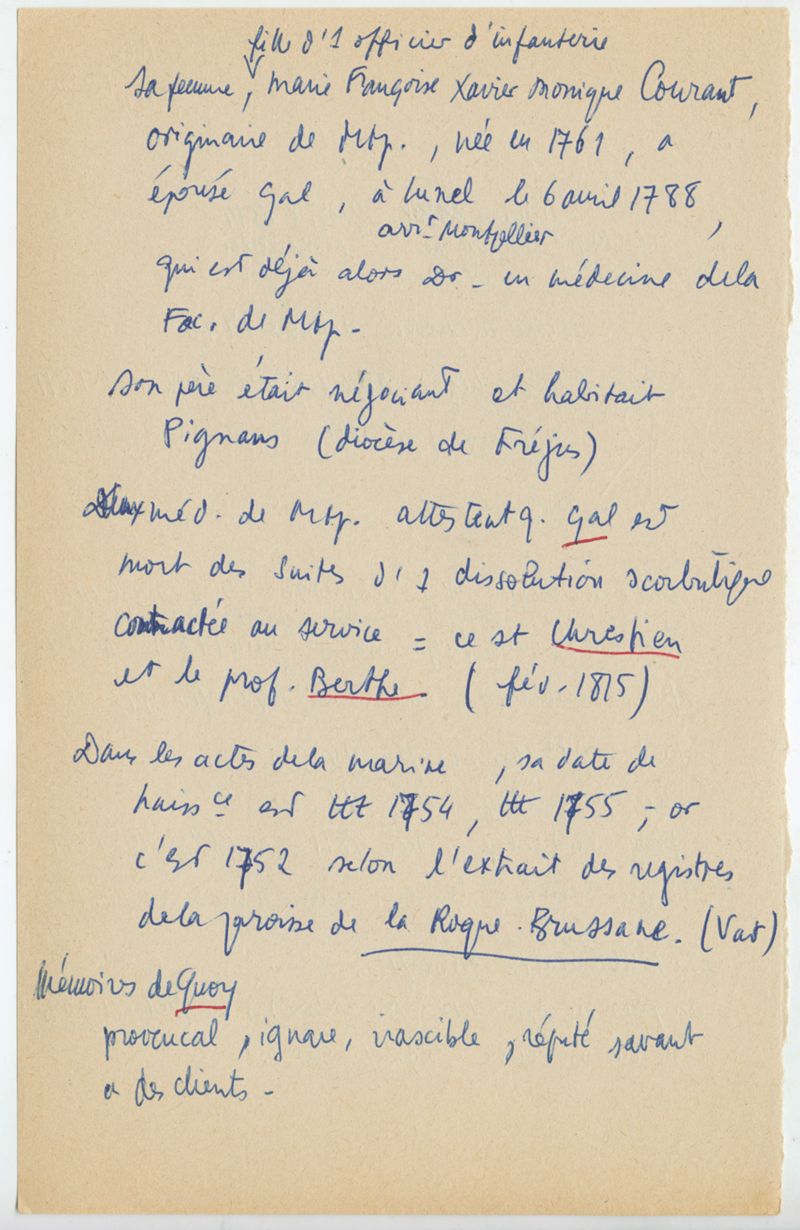 fille d'1 officier d'infanterie
Sa femme, Marie Françoise Xavier Monique Courant,
originaire de Mtp., née en 1761, a
épousé Gal, à Lunel le 6 avril 1788,
arrt Montpellier
qui est déjà alors Dr - en médecine de la
Fac. de Mtp.
Son père était négociant et habitait
Pignans (diocèse de Fréjus)
Deux méd. de Mtp. attestent q. Gal est
mort des suites d'1 dissolution scorbutique
contractée au service = ce st Chrestien
et le prof. Berthe. (fév. 1815)
Dans les actes de la marine, sa date de
naissce est 1754, 1755; or
c'est 1752 selon l'extrait des registres
de la proisse de la Roque-Brussane. (Var)
Mémoires de Quoy
provencal, ignare, irascible, réputé savant
a des clients -